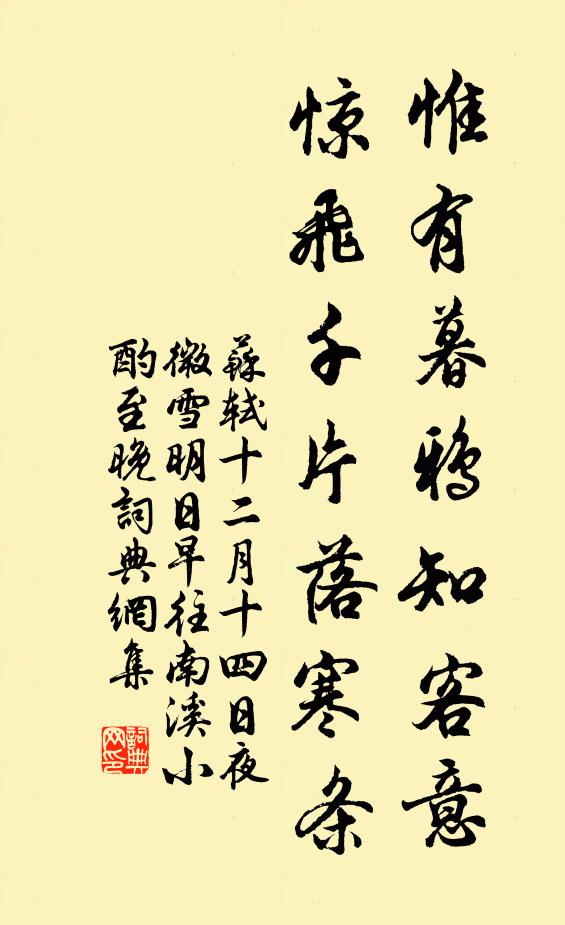 惟有暮鸦知客意
惊飛千片落寒条
蘇軾十二月十四日夜
微雪明日早往南溪小
酌至晚詞典網集
詞典
网印